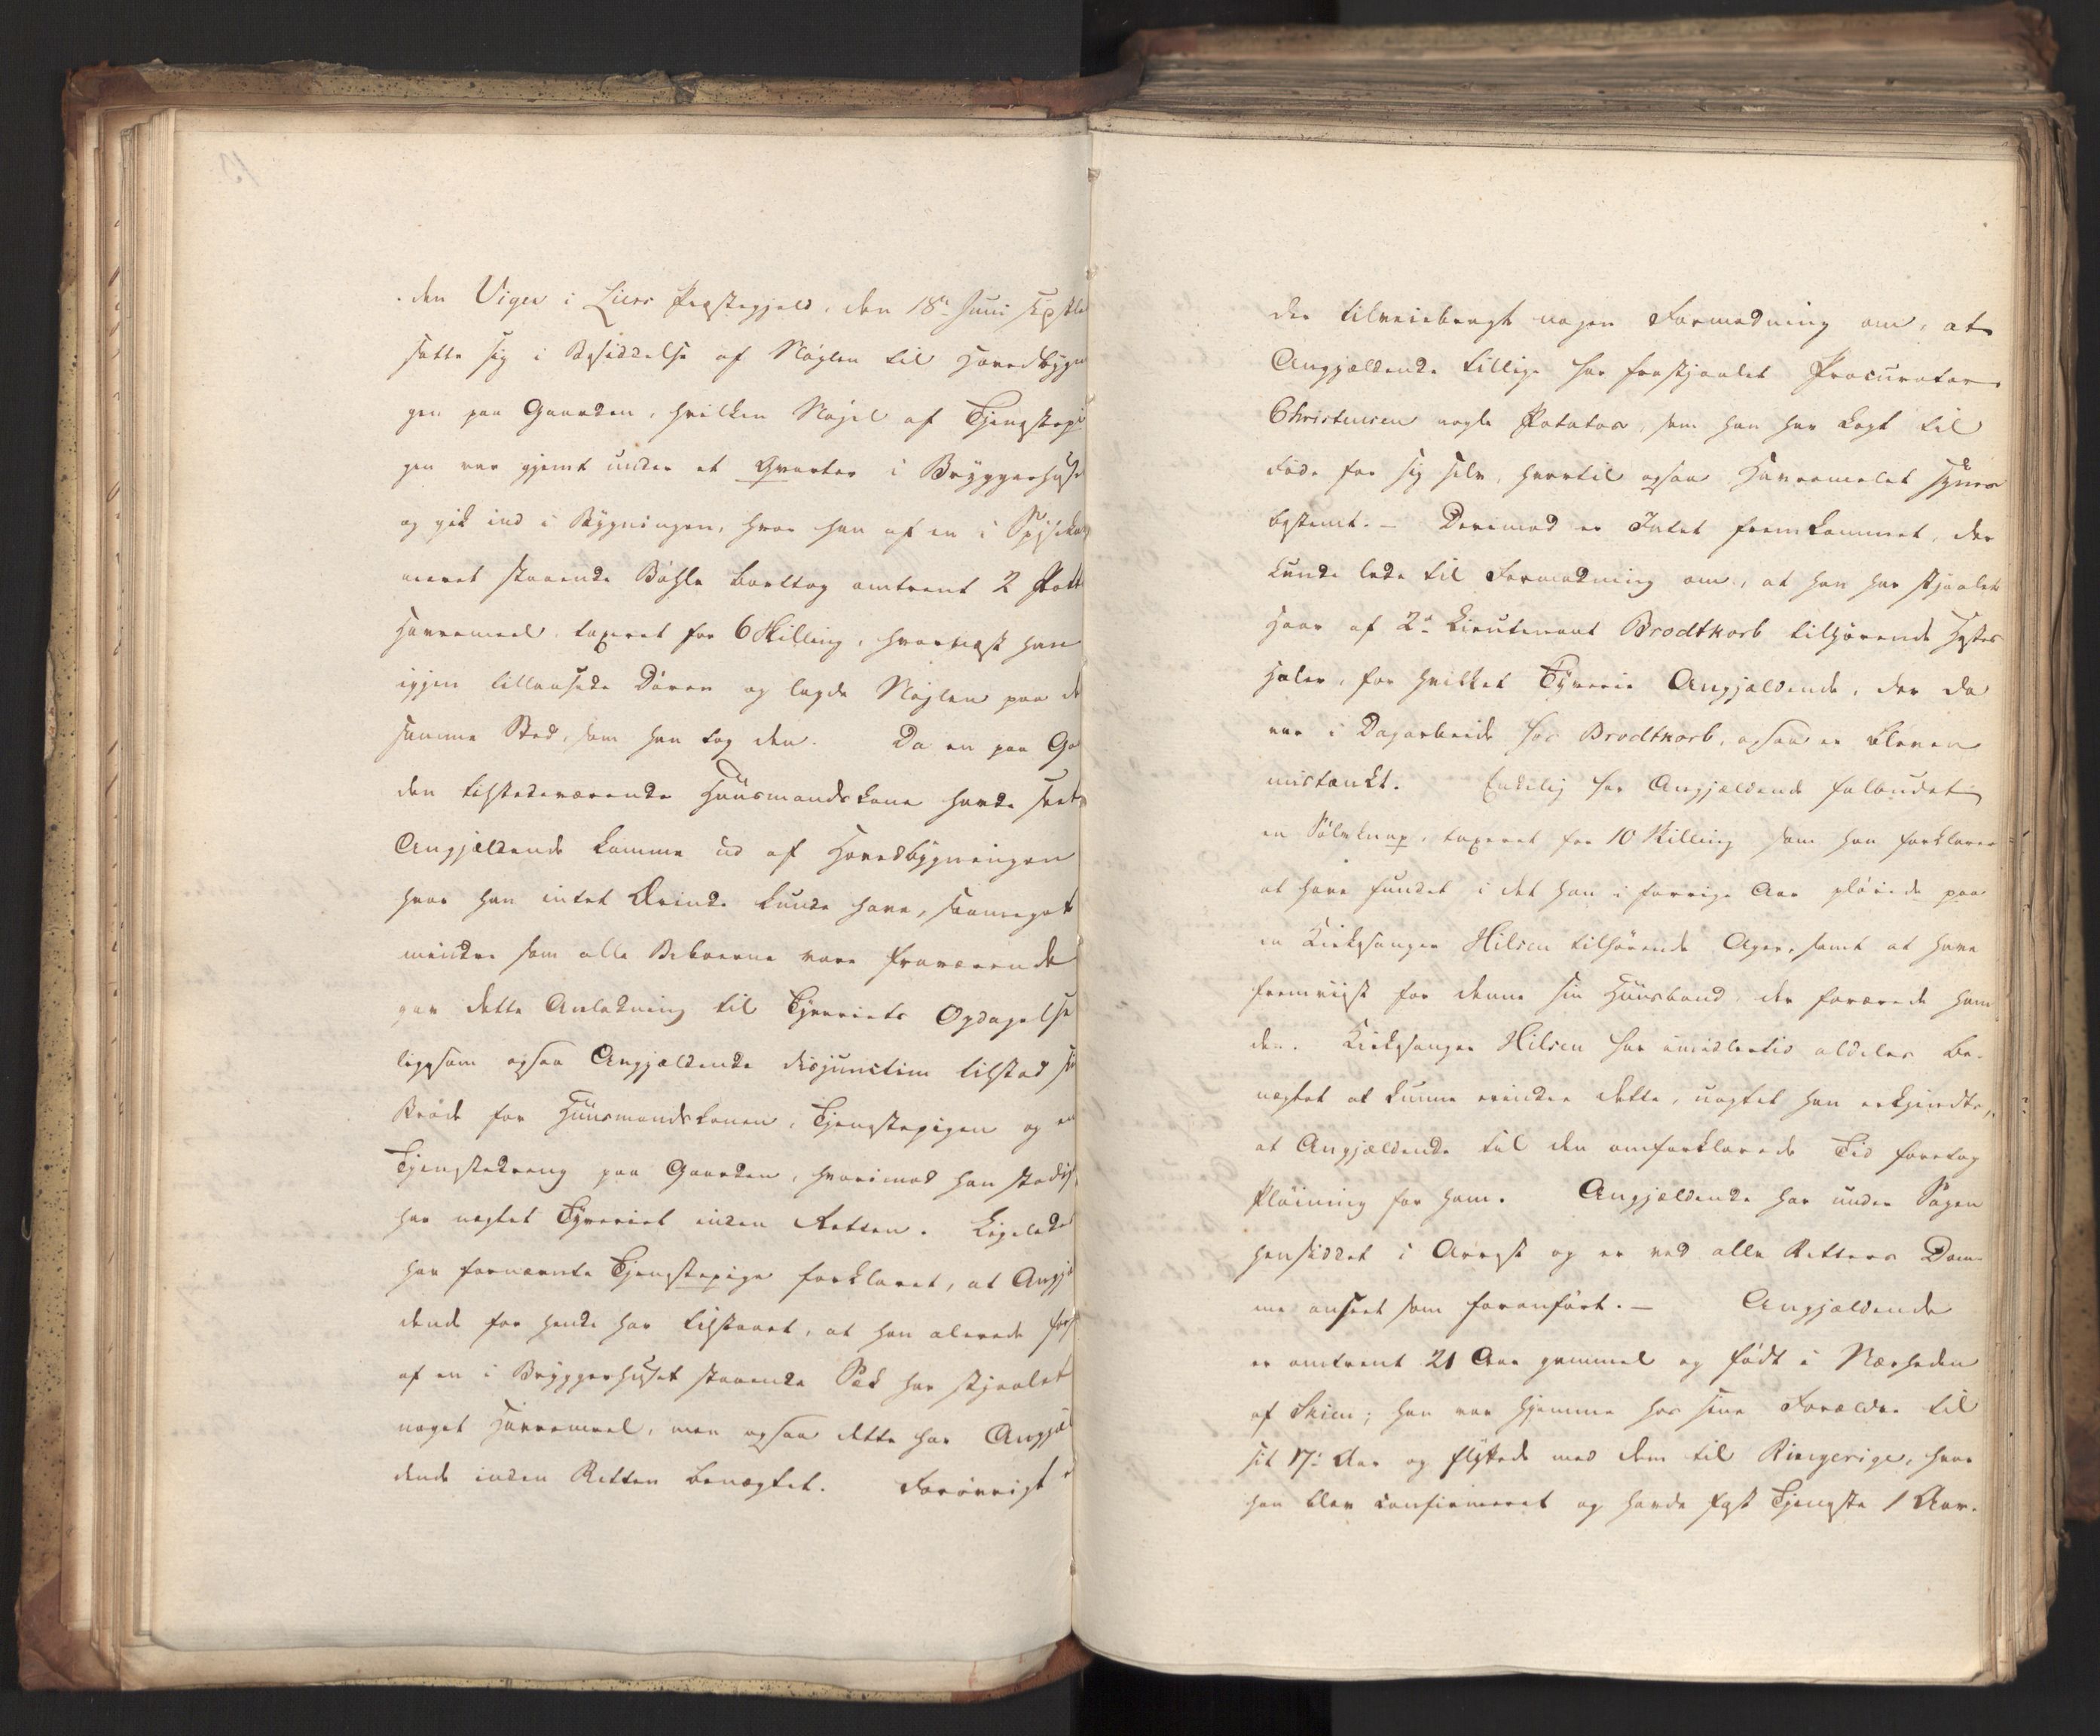 den Viger i Liers Præstegjeld, den 18de Juni sidstl
satte sig i Besiddelse af Nøglen til Hovedbygn
gen paa Gaarden, hvilken Nøgel af Tjenestepi
gen var gjemt under et Qvarter i Bryggerhuset
og gik ind i Bygningen, hvor han af en i Spisekam
meret staaende Bøtte borttog omtrent 2 Pott
Havremeel, taxeret for 6 Skilling, hvornæst han
igjen tillaasede Døren og lagde Nøglen paa d
samme Sted, som han tog den. Da en paa Ga
den tilstedeværende Huusmandskone havde seet
Angjældende komme ud af Hovedbygningen
hvor han intet Ærinde kunde have, saameget
mindre som alle Beboerne vare fraværende
gav dette Anledning til Tyveriets Opdagelse
ligesom ogsaa Angjældende disjunctim tilstod si
Brøde for Huusmandskonen, Tjenestepigen og en
Tjenestedreng paa Gaarden, hvorimod han stadig
har negtet Tyveriet inden Retten. Ligelede
har fornævnte Tjenestepige forklaret, at Angjæ
dende for hende har tilstaaet, at han allerede før
af en i Bryggerhuset staaende Sæk har stjaalet
noget Havremeel, men ogsaa dette har Angjæl
dende inden Retten benægtet. Forøvrigt
der tilveiebragt nogen Formodning om, at
Angjældende tillige har frastjaalet Procurator
Christensen nogle Potatos, som han har kogt til
Føde for sig selv, hvortil ogsaa Havremelet synes
bestemt. – Derimod er Intet fremkommet, der
kunde lede til Formodning om, at han har stjaalet
Haar af 2d Lieutenant Brodtkorb tilhørende Hestes
Haler, for hvilket Tyverie Angjældende, der da
var i Dagarbeide hos Brodtkorb, ogsaa er bleven
mistænkt. Endelig har Angjældende falbudet
en Sølvknap, taxeret for 10 Skilling som han forklarer
at have fundet i det han i forrige Aar pløiede paa
en Kirkesanger Hilsen tilhørende Ager, samt at have
fremviist for denne sin Huusbond, der forærede ham
den. Kirkesanger Hilsen har imidlertid aldeles be-
nægtet at kunne erindre dette, uagtet han erkjendte,
at Angjældende til den omforklarede Tid foretog
Pløining for ham. Angjældende har under Sagen
hensiddet i Arrest og er ved alle Retters Dom-
me anseet som foranført. – Angjældende
er omtrent 21 Aar gammel og født i Nærheden
af Skien; han var hjemme hos sine Forældre til
sit 17de Aar og flyttede med dem til Ringerige, hvor
han blev confirmeret og havde fast Tjeneste 1 Aar.